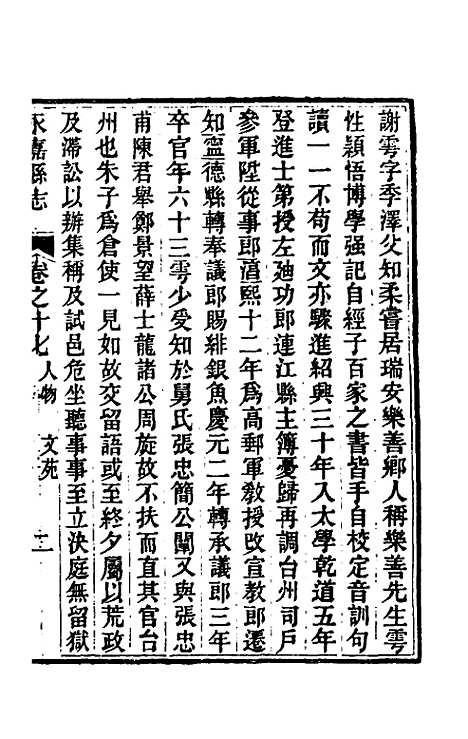 謝雩字季澤父知柔嘗居瑞安樂善鄉人稱樂善先生雩
性穎悟博學强記自經子百家之書皆手自校定音訓句
讀一一不苟而文亦驟進紹興三十年入太學乾道五年
登進士第授左廸功郎連江縣主簿憂歸再調台州司戶
參軍陞從事郎淳熙十二年爲高郵軍敎授改宣敎郎遷
知寧德縣轉奉議郎賜緋銀魚慶元二年轉承議郎三年
卒官年六十三雩少受知於舅氏張忠簡公闡又與張忠
甫陳君舉鄭景望薛士龍諸公周旋故不扶而直其官台
州也朱子爲倉使一見如故交留語或至終夕屬以荒政
及滯訟以辦集稱及試邑危坐聽事事至立決庭無留獄
永嘉縣志 卷之十七 人物 文苑 十二